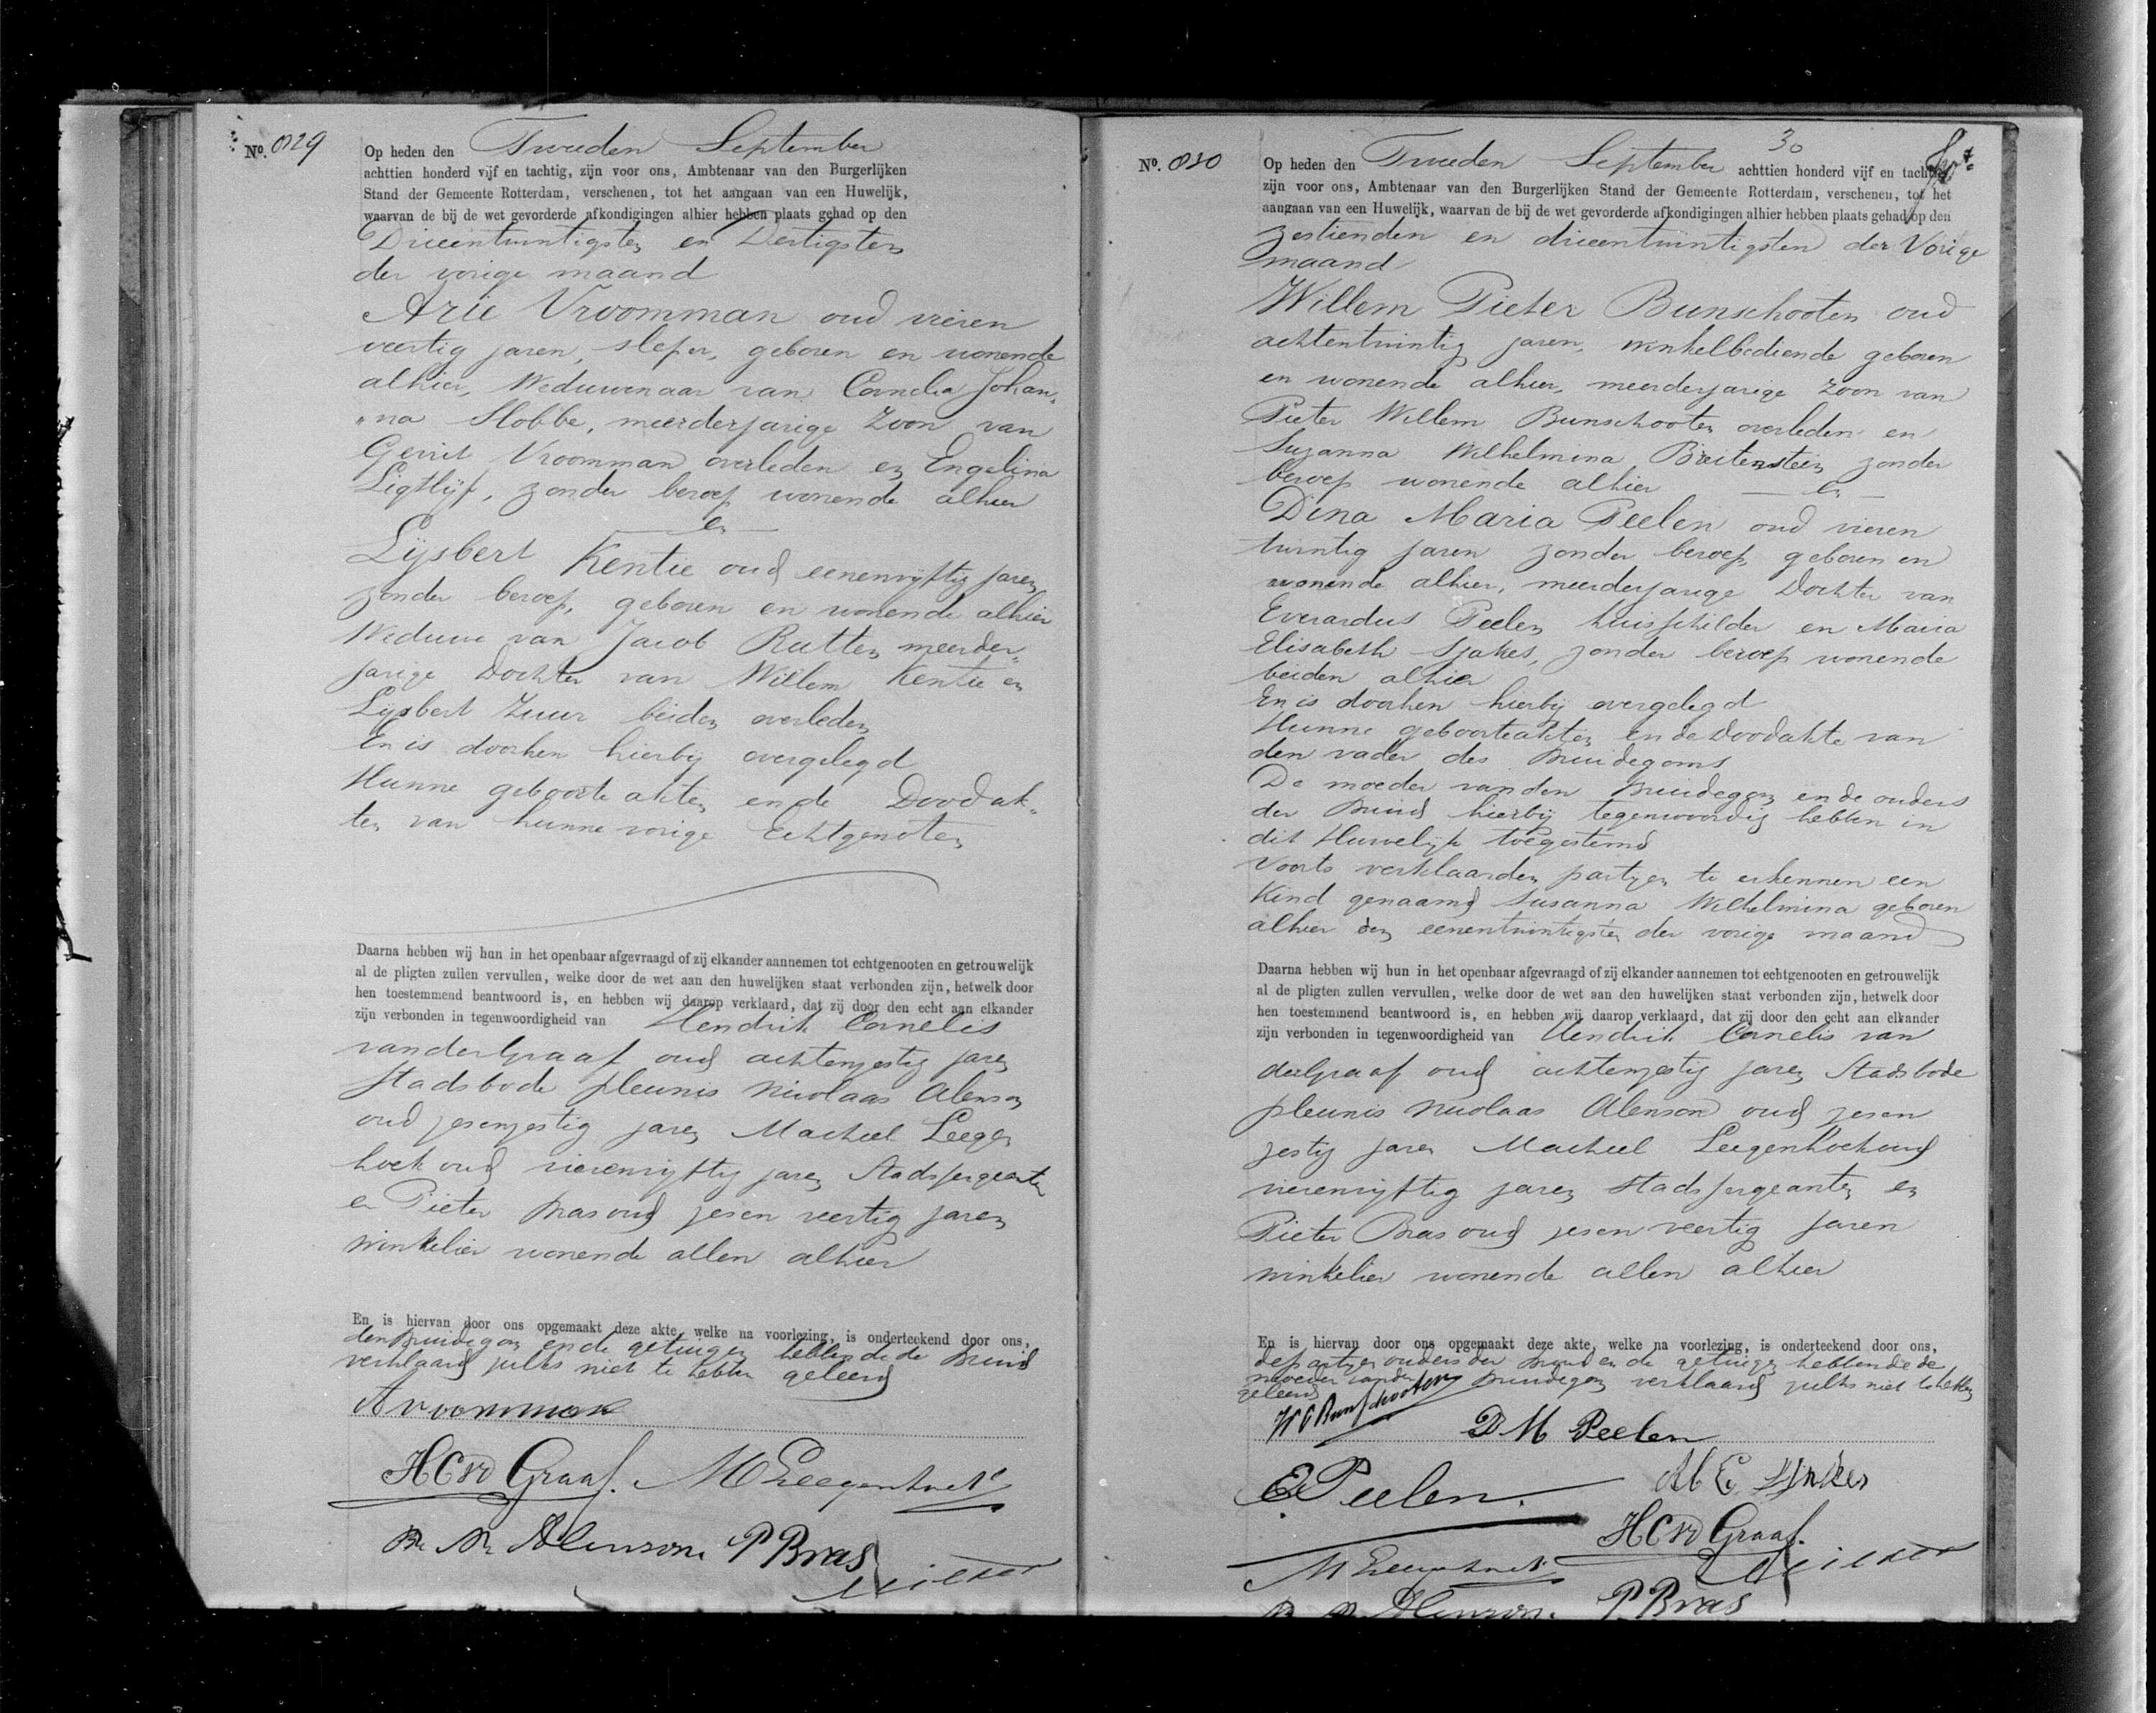 No. 829
Op heden den Tweeden September
achttien honderd vijf en tachtig, zijn voor ons, Ambtenaar van den Burgerlijken
Stand der Gemeente Rotterdam, verschenen, tot het aangaan van een Huwelijk,
waarvan de bij de wet gevorderde afkondigingen alhier hebben plaats gehad op den
Drieentwintigsten en Dertigsten
der vorige maand
Arie Vroomman oud vieren
veertig jaren, sleper, geboren en wonende
alhier, Weduwenaar van Cornelia Johan„
„na Slobbe, meerderjarige Zoon van
Gerrit Vroomman overleden en Engelina
Ligtlijf, zonder beroep wonende alhier
en
Lijsbert Kentie oud eenenvijftig jaren
zonder beroep, geboren en wonende alhier
Weduwe van Jacob Rutten meerder„
jarige Dochter van Willem Kentie en
Lijsbert Zuur beiden overleden
En is door hen hierbij overgelegd
Hunne geboorte akten en de Doodak„
ten van hunne vorige Echtgenoten
Daarna hebben wij hun in het openbaar afgevraagd of zij elkander aannemen tot echtgenooten en getrouwelijk
al de pligten zullen vervullen, welke door de wet aan den huwelijken staat verbonden zijn, hetwelk door
hen toestemmend beantwoord is, en hebben wij daarop verklaard, dat zij door den echt aan elkander
zijn verbonden in tegenwoordigheid van Hendrik Cornelis
van der Graaf oud achtenzestig jaren
Stadsbode Pleunis Nicolaas Alenson
oud zesenzestig jaren Machiel Leegen
hoek oud vierenvijftig jaren Stadssergeanten
en Pieter Bras oud zesen veertig jaren
winkelier wonende allen alhier
En is hiervan door ons opgemaakt deze akte, welke na voorlezing, is onderteekend door ons,
den Bruidegom en de getuigen hebbende de Bruid
verklaard zulks niet te hebben geleerd
A vroomman
HCvd Graaf. M Leegenhoek
P. N. Alenson. P Bras
No. 830
30
Op heden den Tweeden September achttien honderd vijf en tachtig,
zijn voor ons, Ambtenaar van den Burgerlijken Stand der Gemeente Rotterdam, verschenen, tot het
aangaan van een Huwelijk, waarvan de bij de wet gevorderde afkondigingen alhier hebben plaats gehad op den
zestienden en drieentwintigsten der Vorige
maand
Willem Pieter Bunschooten oud
achtentwintig jaren, winkelbediende geboren
en wonende alhier, meerderjarige zoon van
Pieter Willem Bunschooten overleden en
Suzanna Wilhelmina Breitenstein zonder
beroep wonende alhier en
Dina Maria Peelen oud vieren
twintig jaren zonder beroep geboren en
wonende alhier, meerderjarige Dochter van
Everardus Peelen huisschilder en Maria
Elisabeth Sjakes, zonder beroep wonende
beiden alhier
En is door hen hierbij overgelegd
Hunne geboorteakten en de doodakte van
den vader des Bruidegoms
De moeder van den Bruidegom en de ouders
der Bruid hierbij tegenwoordig hebben in
dit Huwelijk toegestemd
Voorts verklaarden partijen te erkennen een
Kind genaamd Susanna Wilhelmina geboren
alhier den eenentwintigsten der vorige maand
Daarna hebben wij hun in het openbaar afgevraagd of zij elkander aannemen tot echtgenooten en getrouwelijk
al de pligten zullen vervullen, welke door de wet aan den huwelijken staat verbonden zijn, hetwelk door
hen toestemmend beantwoord is, en hebben wij daarop verklaard, dat zij door den echt aan elkander
zijn verbonden in tegenwoordigheid van Hendrik Cornelis van
der Graaf oud achtenzestig jaren Stadsbode
Pleunis Nicolaas Alenson oud zesen
zestig jaren Machiel Leegenhoek oud
vierenvijftig jaren Stadssergeanten en
Pieter Bras oud zesen veertig jaren
winkelier wonende allen alhier
En is hiervan door ons opgemaakt deze akte, welke na voorlezing, is onderteekend door ons,
de partijen ouders der Bruid en de getuigen hebbende de
moeder van den Bruidegom verklaard zulks niet te hebben
geleerd
W P Bunschooten
D M Peelen
E Peelen.
M E Sjakes
HCvd Graaf.
M Leegenhoek
P. N. Alenson. P. Bras